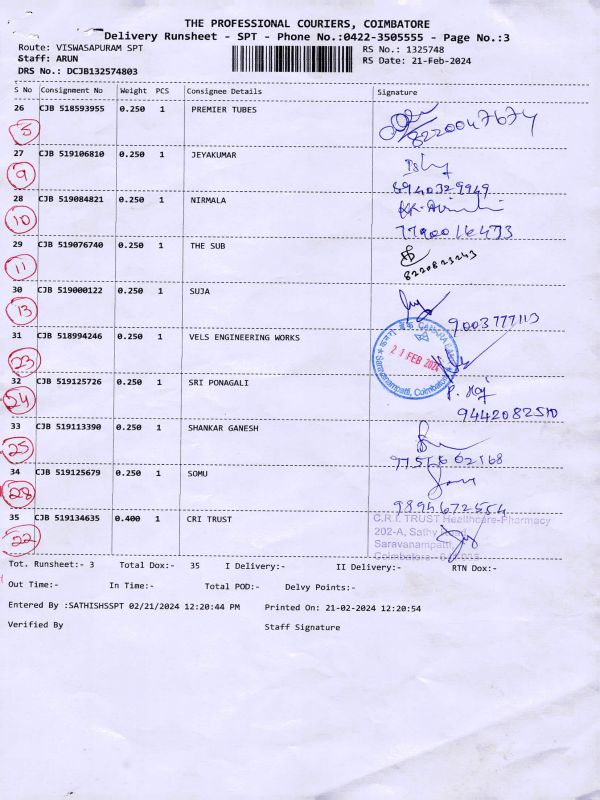 THE PROFESSIONAL COURIERS, COIMBATORE
Delivery Runsheet - SPT - Phone No.:0422-3505555 - Page No.:3
Route: VISWASAPURAM SPT RS No.: 1325748
Staff: ARUN RS Date: 21-Feb-2024
DRS No.: DCJB132574803
S No Consignment No Weight PCS Consignee Details Signature
26 CJB 518593955 0.250 1 PREMIER TUBES
5 8220047674
27 CJB 519106810 0.250 1 JEYAKUMAR
9 8940329949
28 CJB 519084821 0.250 1 NIRMALA
10 7790016473
29 CJB 519076740 0.250 1 THE SUB
11 8220823243
30 CJB 519000122 0.250 1 SUJA
13 9003777113
31 CJB 518994246 0.250 1 VELS ENGINEERING WORKS
21 FEB 2024
Saravanampatti, Coimbatore
23
32 CJB 519125726 0.250 1 SRI PONAGALI
24 9442082510
33 CJB 519113390 0.250 1 SHANKAR GANESH
25
34 CJB 519125679 0.250 1 SOMU
28 9894672554
35 CJB 519134635 0.400 1 CRI TRUST
C.R.I. TRUST Healthcare-Pharmacy
202-A, Sathy Road
22 Saravanampatti,
Tot. Runsheet:- 3 Total Dox:- 35 I Delivery:- II Delivery:- RTN Dox:-
Out Time:- In Time:- Total POD:- Delvy Points:-
Entered By :SATHISHSSPT 02/21/2024 12:20:44 PM Printed On: 21-02-2024 12:20:54
Verified By Staff Signature